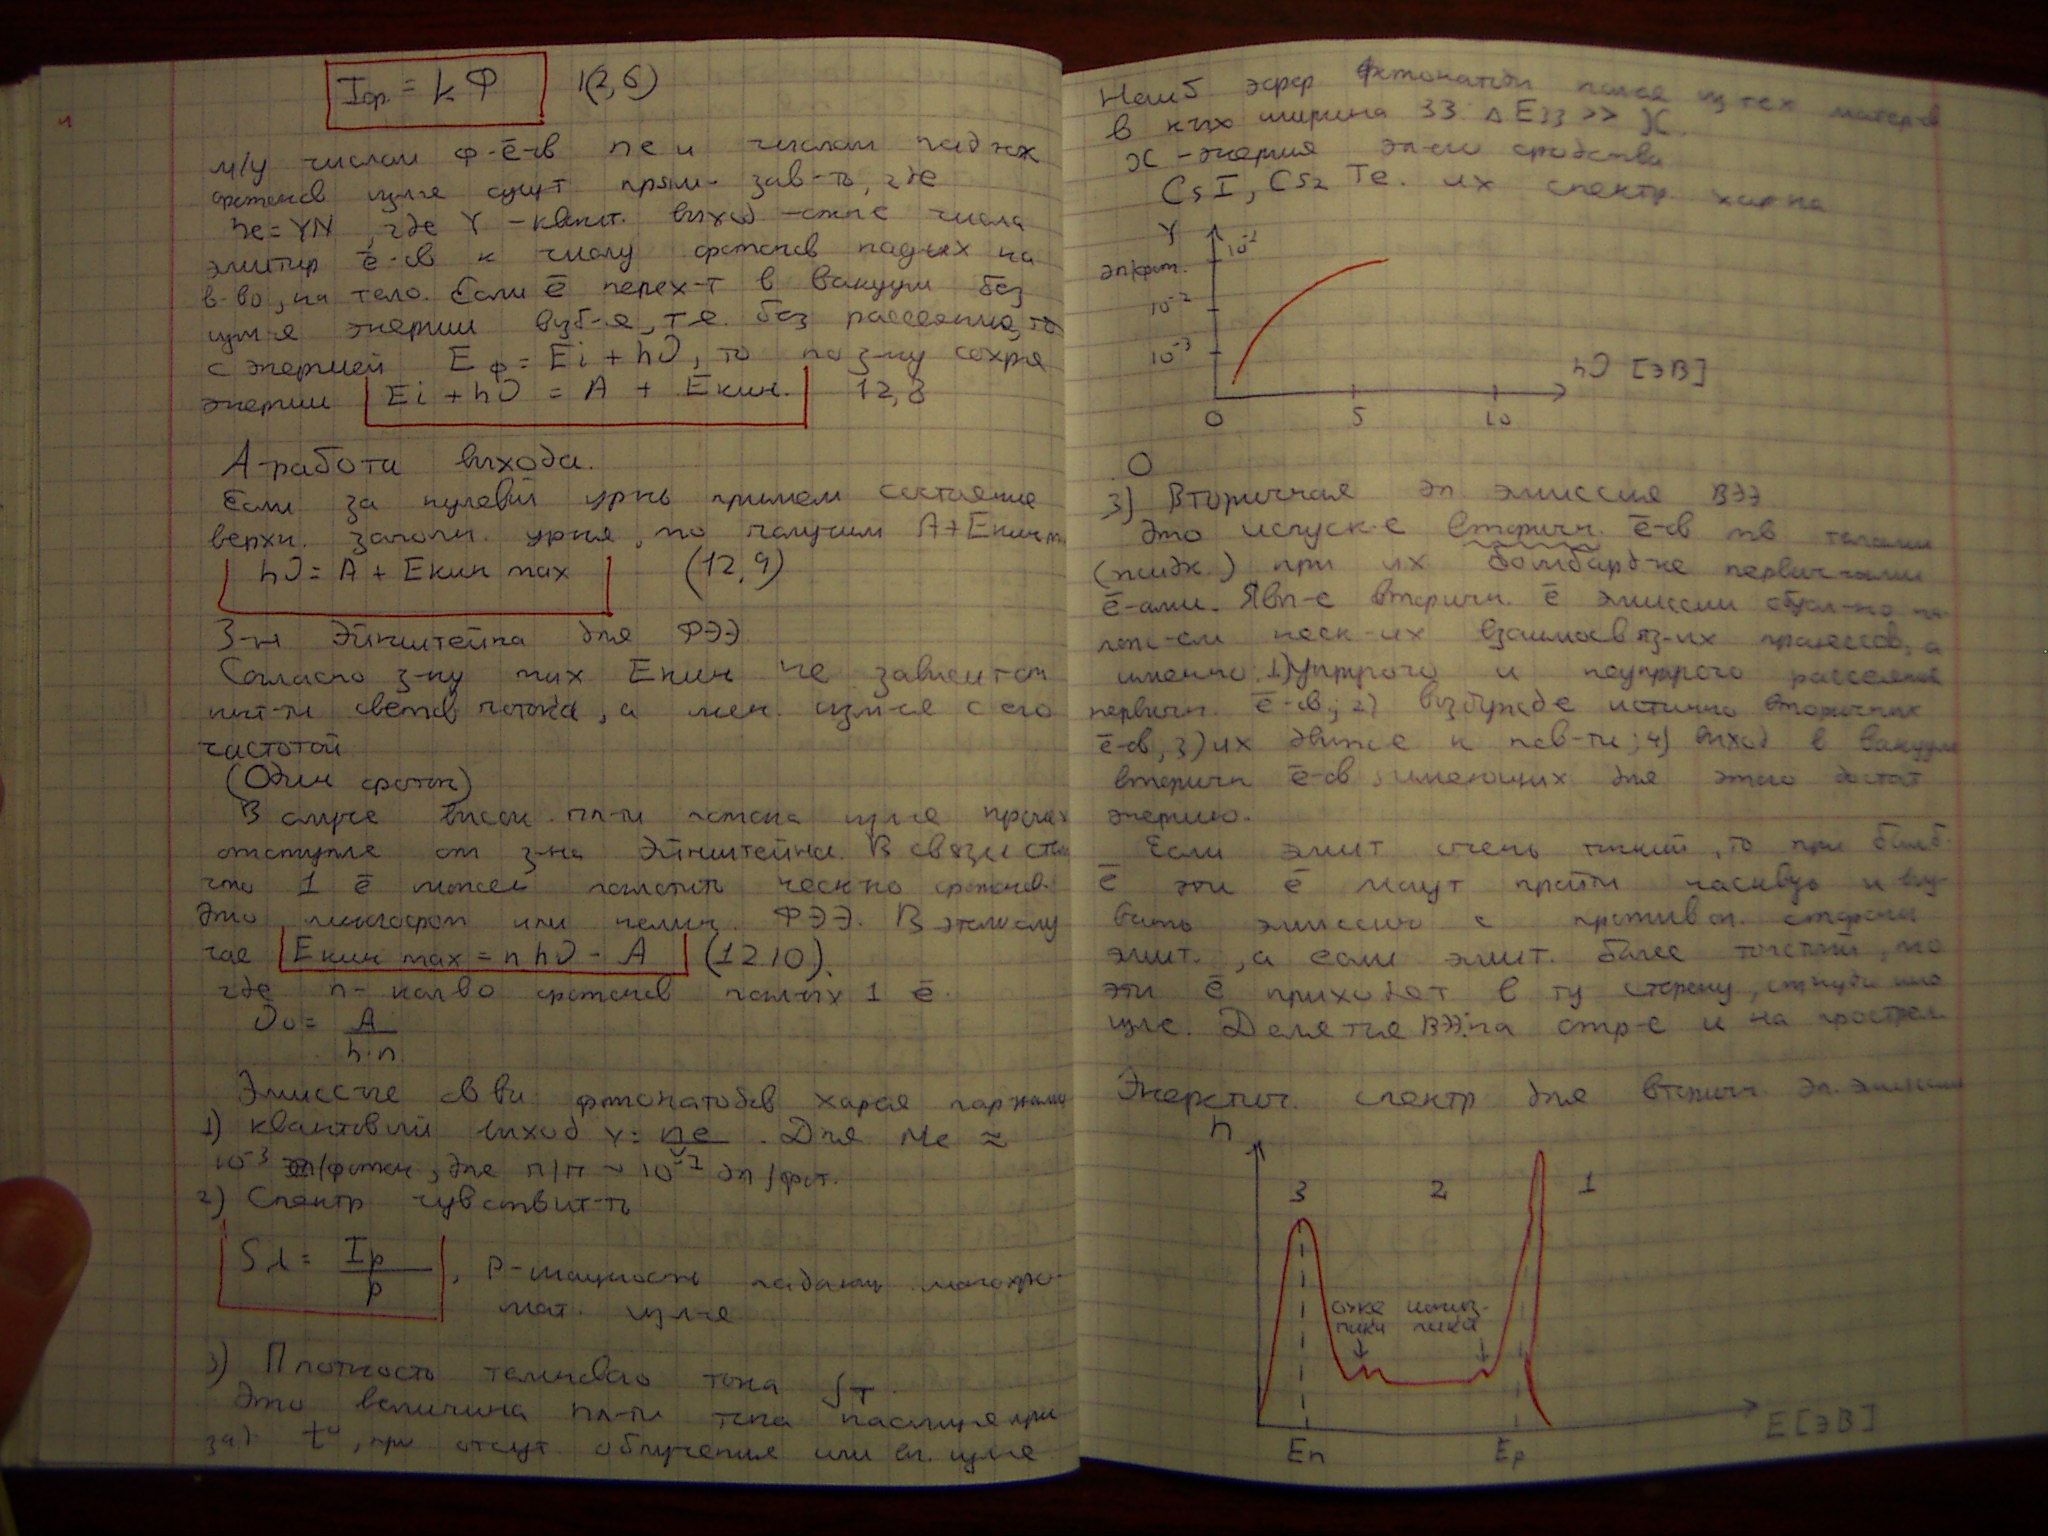 Iф = kФ 1(2,6)
м/у числом ф-ē-в ne и числом пад-их
фотонов изл-я сущ-т прям. зав-ть, где
ne = YN, где Y - квант. выход - отн-е числа
эмитир ē-ов к числу фотонов пад-их на
в-во, на тело. Если ē перех-т в вакуум без
изм-я энергии взб-я, т.е. без рассеяния, то
с энергией Eф = Ei + hν, то по з-ну сохр-я
энергии Ei + hν = A + Eкин. 12,8
A - работа выхода.
Если за нулевой ур-нь примем состояние
верхн. заполн. ур-ня, то получим A + Eкин m
hν = A + Eкин max (12,9)
З-н Эйнштейна для ФЭЭ
Согласно з-ну max Eкин не зависит от
инт-ти светов потока, а лин. изм-ся с его
частотой
(Один фотон)
В случае высок. пл-ти потока изл-я
отступле от з-на Эйнштейна. В связи с тем
что 1 ē может поглотить неск-ко фотонов.
Это многофот или нелин. ФЭЭ. В этом слу
чае Eкин max = nhν - A (12.10).
где n - кол-во фотонов погл-ых 1 ē.
ν0 = A / h·n
Эмисс-ые св-ва фотокатодов хар-ся
1) квантовый выход Y = ne / ν. Для Me ≈
10⁻³ эл/фотон, для п/п ~ 10⁻¹ эл/фот.
2) Спектр чувствит-ть
Sλ = Iф / P, P - мощность падающ. монохро-
мат. изл-я
3) Плотность темнового тока jт.
Это величина пл-ти тока при
зад t°, при отсут. облучения или изл-я
Наиб эффр фотокатоды из тех матер-в
в к-ых ширина ЗЗ ΔEзз >> χ.
χ - энергия эл-го сродства
CsI, Cs2Te. их спектр хар-ка
Y
эл/фот.
10⁻¹
10⁻²
10⁻³
hν [эВ]
0 5 10
0
3) Вторичная эл. эмиссия ВЭЭ
Это испуск-е вторичн. ē-ов тв телами
(жидк.) при их бомбард-ке первичными
ē-ами. Явл-е вторичн. ē эмиссии
неск-их взаимосвяз-их процессов, а
именно: 1) Упругого и неупругого рассеяния
первичн. ē-ов; 2) возбужде истинно вторичных
ē-ов, 3) их движ-е к пов-ти; 4) выход в вакуум
вторичн ē-ов, имеющих для этого достат
энергию.
Если эмит очень тонкий, то при бомб.
ē эти ē могут пройти насквоз и вы-
бить эмиссию с противоп. стороны
эмит., а если эмит. более толстый, то
эти ē приходят в ту сторону, откуда
изл-е. Деля-тся ВЭЭ: на отр-е и на прострел
Энергетич. спектр для вторич эл. эмиссии
n
3 2 1
оже пики
иониз. пики
En Ep E [эВ]